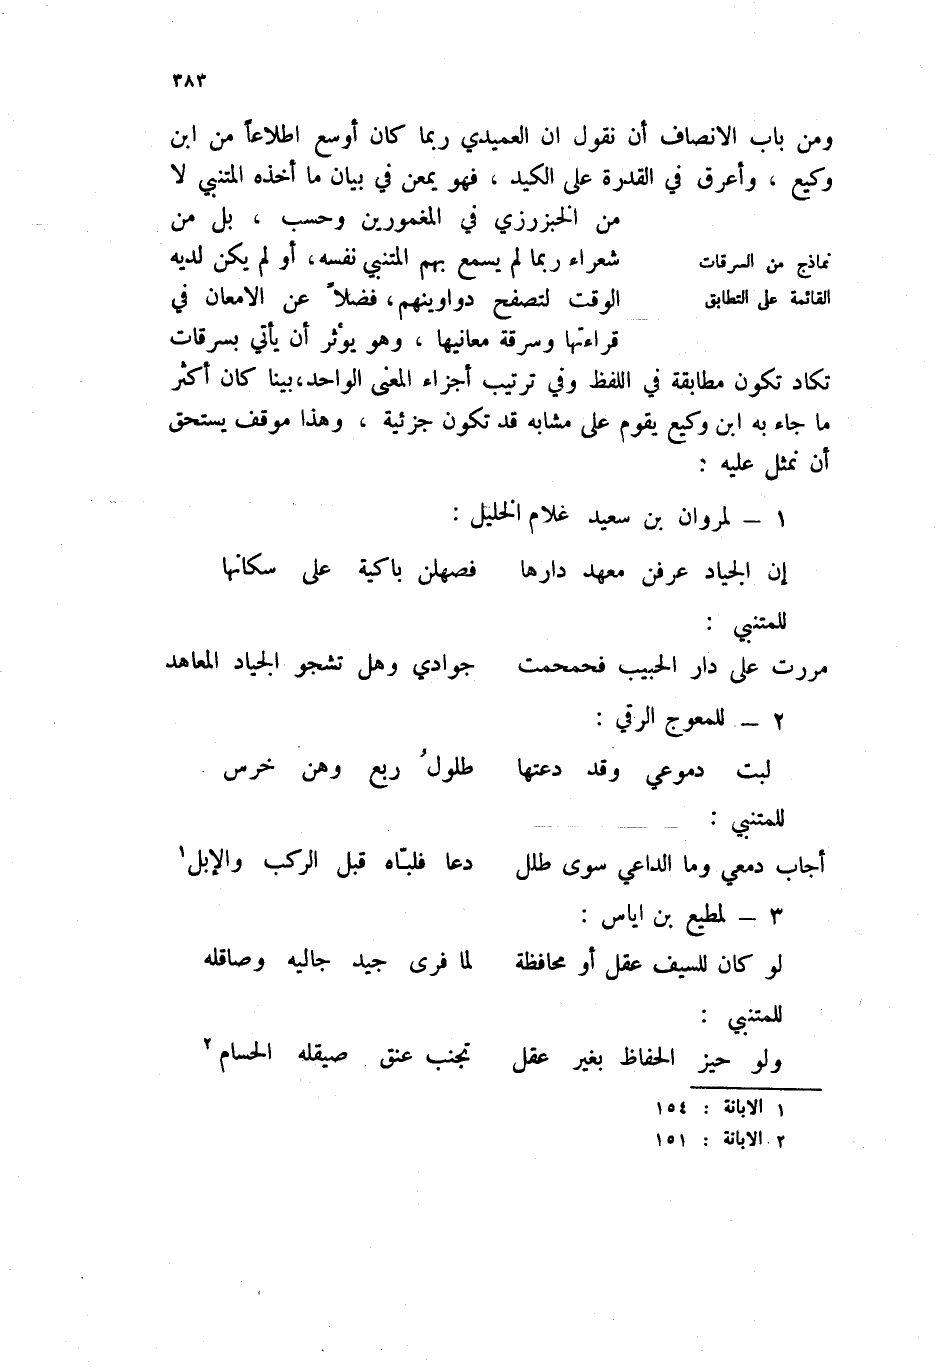 ٣٨٣
ومن باب الانصاف أن نقول ان العميدي ربما كان أوسع اطلاعاً من ابن
وكيع ، وأعرق في القدرة على الكيد ، فهو يمعن في بيان ما أخذه المتنبي لا
من الخبزرزي في المغمورين وحسب ، بل من
نماذج من السرقات
القائمة على التطابق
شعراء ربما لم يسمع بهم المتنبي نفسه، أو لم يكن لديه
الوقت لتصفح دواوينهم، فضلاً عن الامعان في
قراءتها وسرقة معانيها ، وهو يؤثر أن يأتي بسرقات
تكاد تكون مطابقة في اللفظ وفي ترتيب أجزاء المعنى الواحد، بينا كان أكثر
ما جاء به ابن وكيع يقوم على مشابه قد تكون جزئية ، وهذا موقف يستحق
أن نمثل عليه :
١ – لمروان بن سعيد غلام الخليل :
إن الجياد عرفن معهد دارها فصهلن باكية على سكانها
للمتنبي :
مررت على دار الحبيب فحمحمت جوادي وهل تشجو الجياد المعاهد
٢ – للمعوج الرقي :
لبت دموعي وقد دعتها طلولُ ربع وهن خرس
للمتنبي :
أجاب دمعي وما الداعي سوى طلل دعا فلبّاه قبل الركب والإبل١
٣ – لمطيع بن اياس :
لو كان للسيف عقل أو محافظة لما فرى جيد جاليه وصاقله
للمتنبي :
ولو حيز الحفاظ بغير عقل تجنب عنق صيقله الحسام٢
١ الابانة : ١٥٤
٢ الابانة : ١٥١